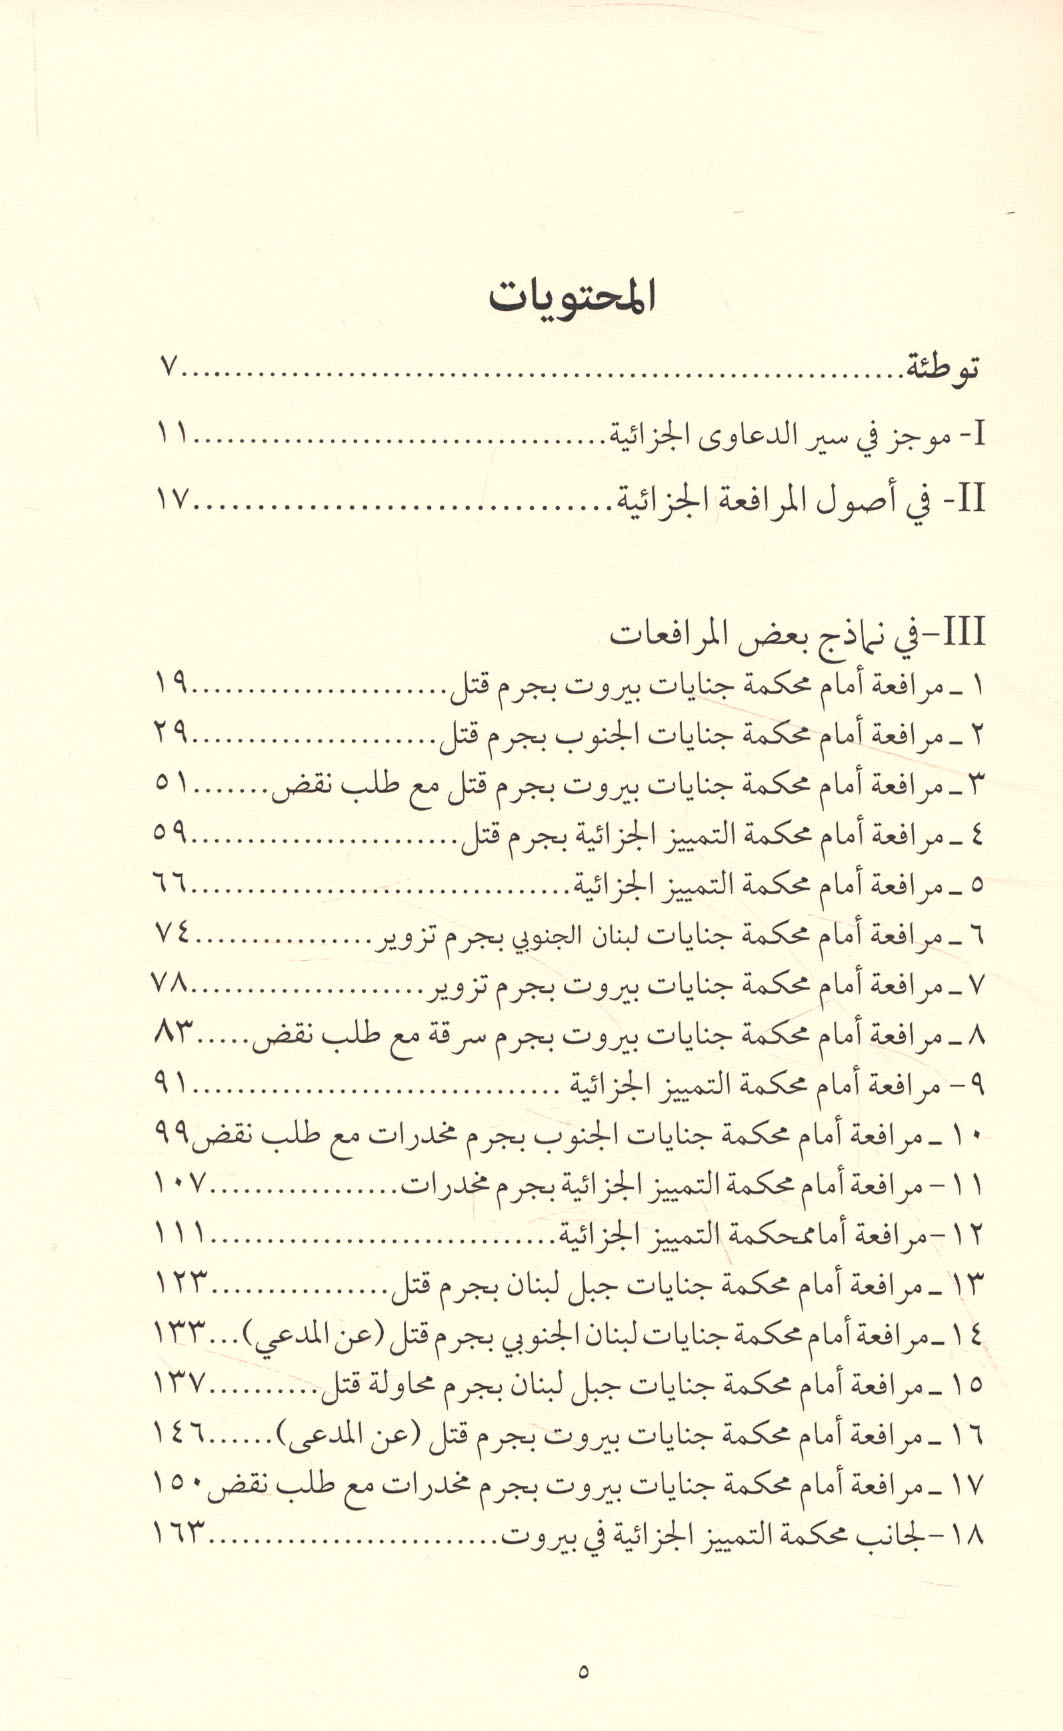 المحتويات
توطئة..........................................................٧
I- موجز في سير الدعاوى الجزائية....................................١١
II- في أصول المرافعة الجزائية.................................١٧
III-في نماذج بعض المرافعات
١ ـ مرافعة أمام محكمة جنايات بيروت بجرم قتل......................١٩
٢ ـ مرافعة أمام محكمة جنايات الجنوب بجرم قتل.....................٢٩
٣ ـ مرافعة أمام محكمة جنايات بيروت بجرم قتل مع طلب نقض.......٥١
٤ ـ مرافعة أمام محكمة التمييز الجزائية بجرم قتل.......................٥٩
٥ ـ مرافعة أمام محكمة التمييز الجزائية................................٦٦
٦ ـ مرافعة أمام محكمة جنايات لبنان الجنوبي بجرم تزوير................٧٤
٧ ـ مرافعة أمام محكمة جنايات بيروت بجرم تزوير....................٧٨
٨ ـ مرافعة أمام محكمة جنايات بيروت بجرم سرقة مع طلب نقض.....٨٣
٩- مرافعة أمام محكمة التمييز الجزائية ................................٩١
١٠ ـ مرافعة أمام محكمة جنايات الجنوب بجرم مخدرات مع طلب نقض٩٩
١١- مرافعة أمام محكمة التمييز الجزائية بجرم مخدرات.................١٠٧
١٢-مرافعة أماممحكمة التمييز الجزائية..............................١١١
١٣ ـ مرافعة أمام محكمة جنايات جبل لبنان بجرم قتل................١٢٣
١٤ ـ مرافعة أمام محكمة جنايات لبنان الجنوبي بجرم قتل (عن المدعي)...١٣٣
١٥ ـ مرافعة أمام محكمة جنايات جبل لبنان بجرم محاولة قتل..........١٣٧
١٦ ـ مرافعة أمام محكمة جنايات بيروت بجرم قتل (عن المدعى)......١٤٦
١٧ ـ مرافعة أمام محكمة جنايات بيروت بجرم مخدرات مع طلب نقض١٥٠
١٨-لجانب محكمة التمييز الجزائية في بيروت.........................١٦٣
٥